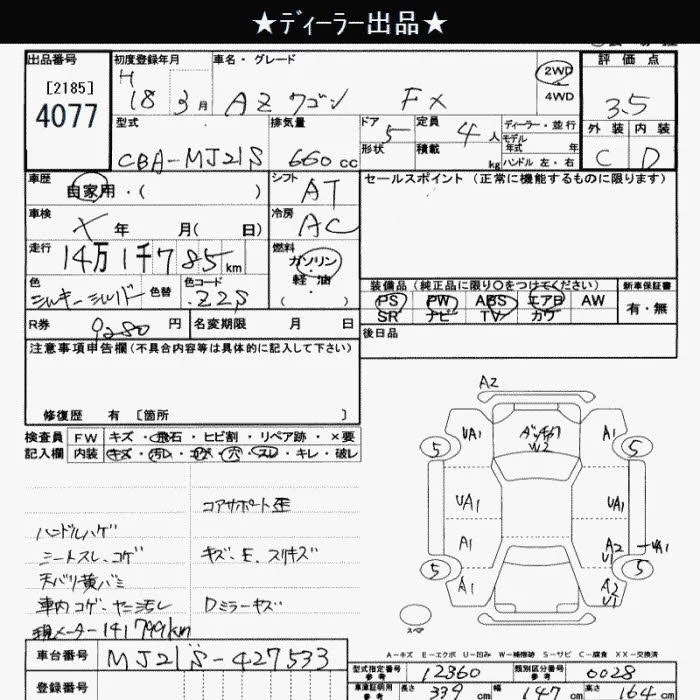 ★ディーラー出品★
出品番号
[2185]
4077
初度登録年月
H
18 3月
車名・グレード
AZワゴン FX
2WD
4WD
評価点
3.5
外装 内装
C D
型式
CBA-MJ21S
排気量
660cc
ドア
5
形状
定員
4人
積載
kg
ディーラー・並行
モデル
年式 年
ハンドル 左・右
車歴
自家用・( )
シフト
AT
セールスポイント(正常に機能するものに限ります)
車検
X年 月( 日)
冷房
AC
走行
14万1千785km
燃料
ガソリン
軽・油
( )
色
シルキーシルバー
色替
色コード
Z2S
装備品(純正品に限り○をつけてください)
新車保証書
PS PW ABS エアB AW
SR ナビ TV カワ
有・無
R券 9280円
名変期限 月 日
後日品
注意事項申告欄(不具合内容等は具体的に記入して下さい)
修復歴 有 [箇所 ]
検査員
記入欄
FW キズ・飛石・ヒビ割・リペア跡・×要
内装 キズ・汚レ・コゲ・穴・スレ・キレ・破レ
コアサポート歪
ハンドルハゲ
シートスレ、コゲ
キズ、E、スリキズ
天バリ黄バミ
車内コゲ・ヤニ汚レ
Dミラーキズ
現メーター141799km
A2
UA1 W2 A1
5 5
UA1 UA1
A1 A2 U1 UA1
5 5
A1 A2 U1
スペア
A-キズ E-エクボ U-凹み W-補修跡 S-サビ C-腐食 XX-交換済
車台番号 MJ21S-427533
登録番号
型式指定番号
参考
12360
類別区分番号
参考
0028
車庫証明用
参考
長さ 339cm 幅 147cm 高さ 164cm